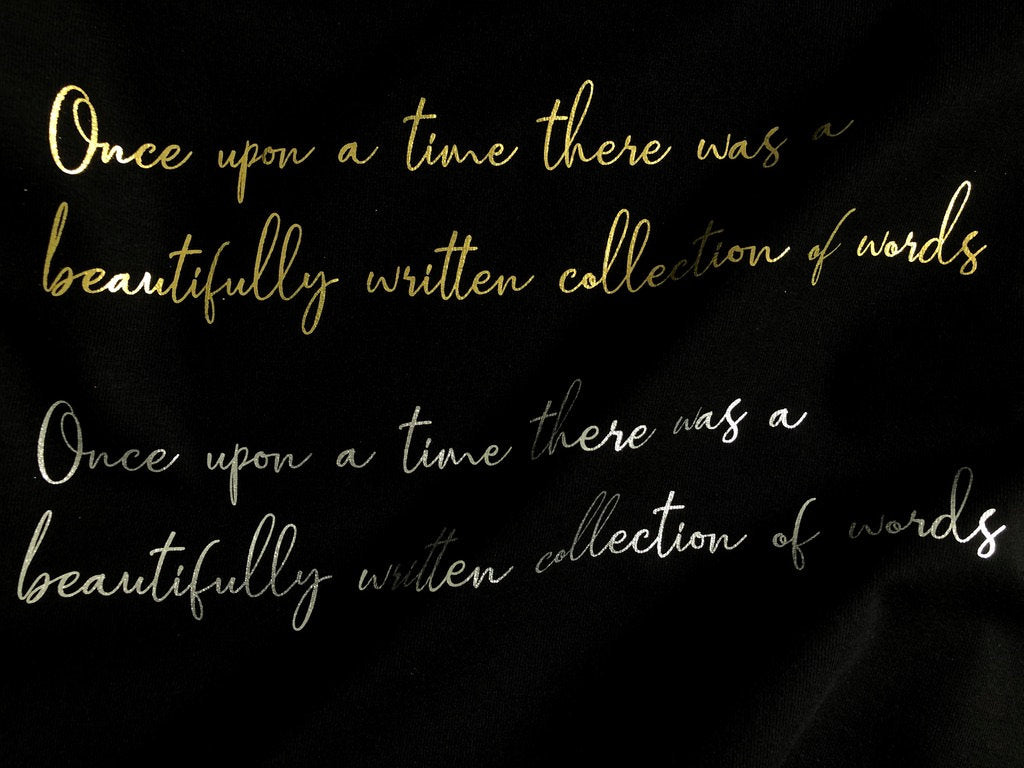 Once upon a time there was a
beautifully written collection of words
Once upon a time there was a
beautifully written collection of words